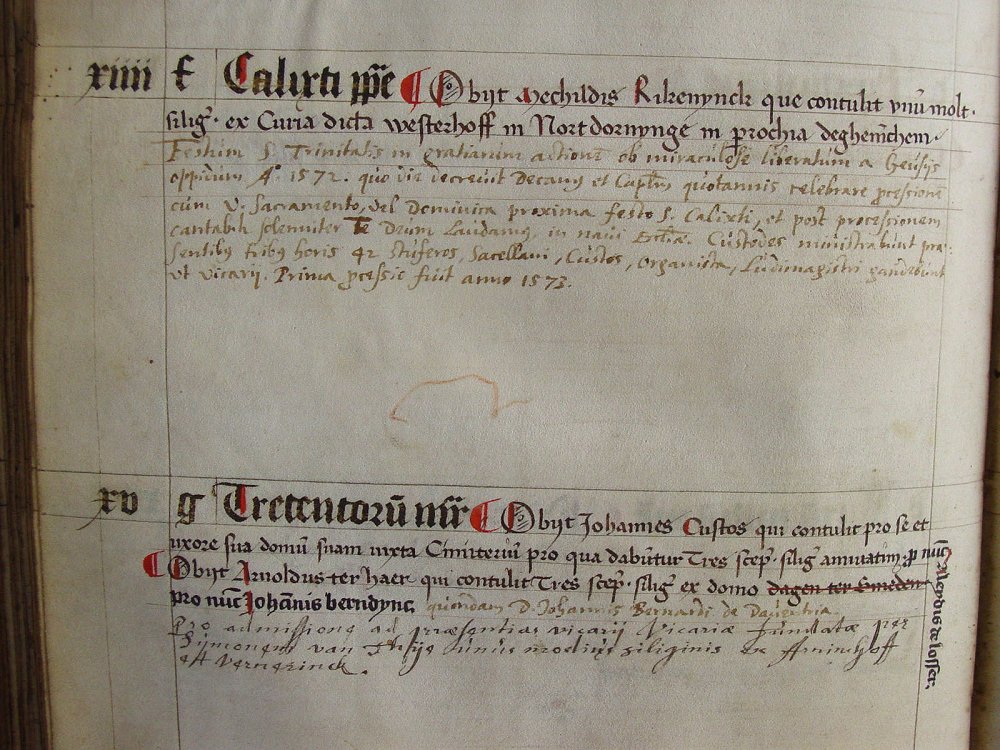 xiiii f Calixti ppe ¶ Obijt Mechildis Rikenynck que contulit unū molt.
silig. ex Curia dicta Westerhoff in Nortdornynge in prochia deghemchem.
Festum S. Trinitatis in gratiarum actione ob miraculose liberatum a Geusijs
oppidum Aº. 1572. quo die decrevit Decanus et Captm quotannis celebrare pcessione
cum V. Sacramento, vel Dominica proxima festo S. Calixti, et post processionem
cantabit solenniter Te Deum Laudamus, in navi Eccliæ. Custodes ministrabunt præ-
sentibus tribus horis 42 stuferos, Sacellani, Custos, Organista, Ludimagistri gaudebunt
ut vicarij. Prima pcessio fuit anno 1573.
xv g Trecentorū mr ¶ Obijt Johannes Custos qui contulit pro se et
uxore sua domū suam iuxta Cimiteriū pro qua dabūtur Tres scep. silig annuatim pro nūc Aleydis de losser,
¶ Obijt Arnoldus ter haer qui contulit Tres scep. silig ex domo dagen ter Emeden
pro nūc Johānis berndync, quondam D. Johannis Bernardi de Daventria
Pro admissione ad præsentias vicarij Vicariæ fundatæ per
Symonem van unius modius siliginis ex
et Vernerinck.